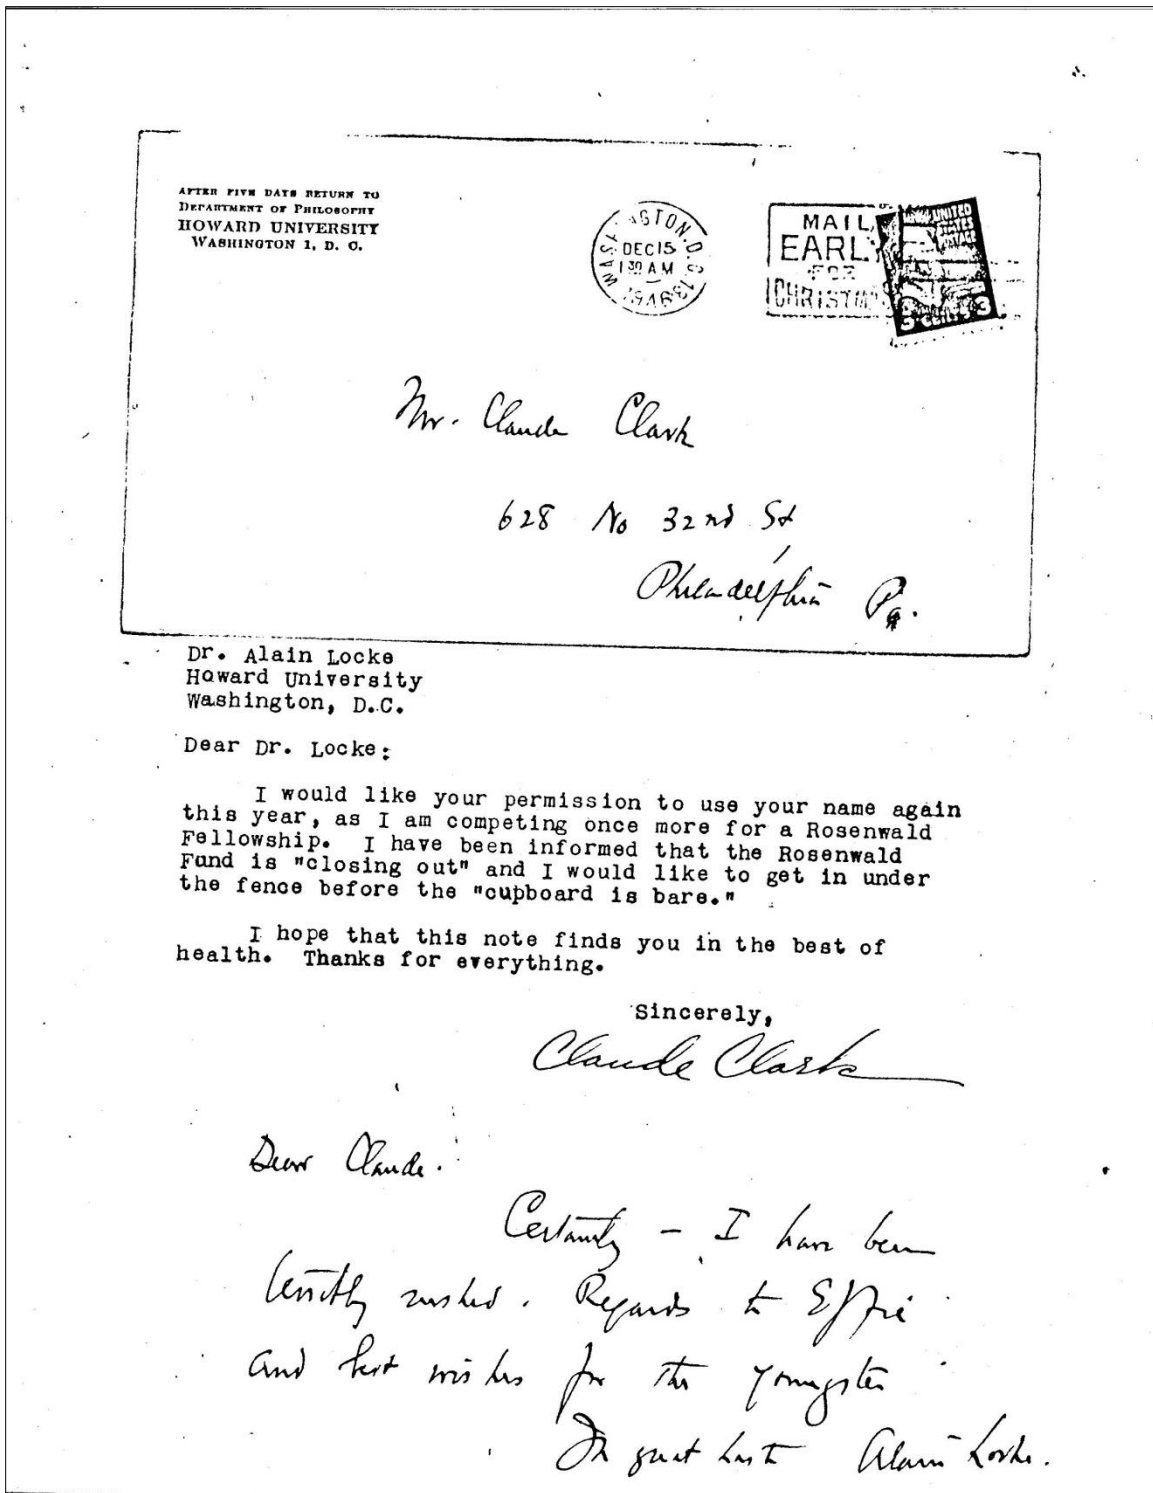 AFTER FIVE DAYS RETURN TO
DEPARTMENT OF PHILOSOPHY
HOWARD UNIVERSITY
WASHINGTON 1, D. C.
WASHINGTON, D.C. 13
DEC 15
1 30 AM
MAIL
EARLY
FOR
CHRISTM
UNITED
STATES
3 CENTS 3
Mr. Claude Clark
628 No 32nd St
Philadelphia Pa.
Dr. Alain Locke
Howard University
Washington, D.C.
Dear Dr. Locke:
I would like your permission to use your name again
this year, as I am competing once more for a Rosenwald
Fellowship. I have been informed that the Rosenwald
Fund is "closing out" and I would like to get in under
the fence before the "cupboard is bare."
I hope that this note finds you in the best of
health. Thanks for everything.
Sincerely,
Claude Clark
Dear Claude.
Certainly – I have been
terribly rushed. Regards to Effie
and best wishes for the youngster
In great haste Alain Locke.